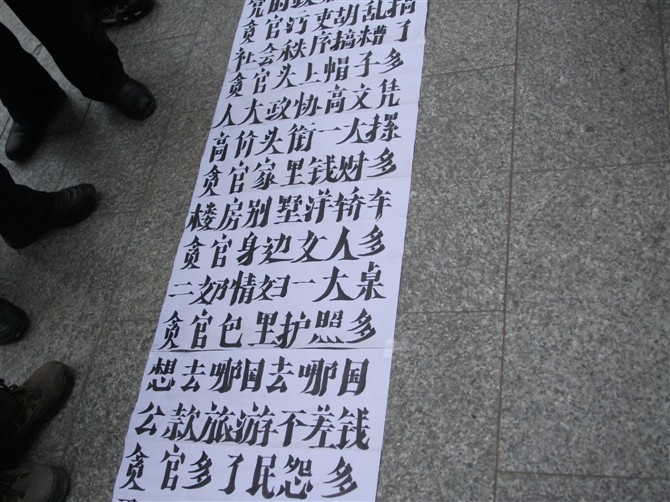 党的政
贪官污吏胡乱搞
社会秩序搞糟了
贪官头上帽子多
人大政协高文凭
高价头衔一大摞
贪官家里钱财多
楼房别墅洋轿车
贪官身边女人多
二奶情妇一大桌
贪官包里护照多
想去哪国去哪国
公款旅游不差钱
贪官多了民怨多